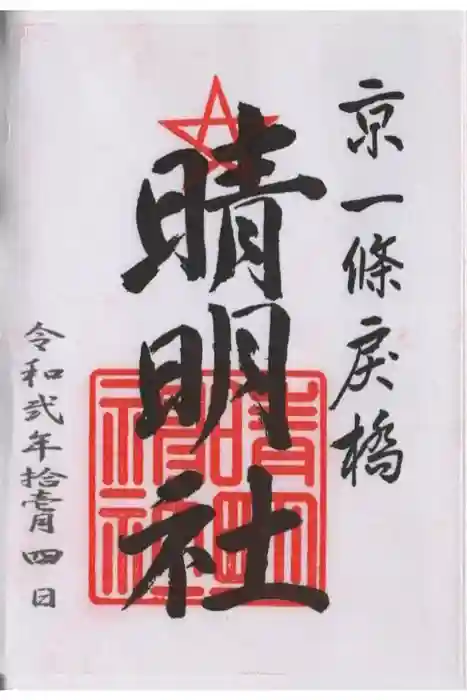 京一條戻橋
晴明社
晴明神社
令和弐年拾壱月四日